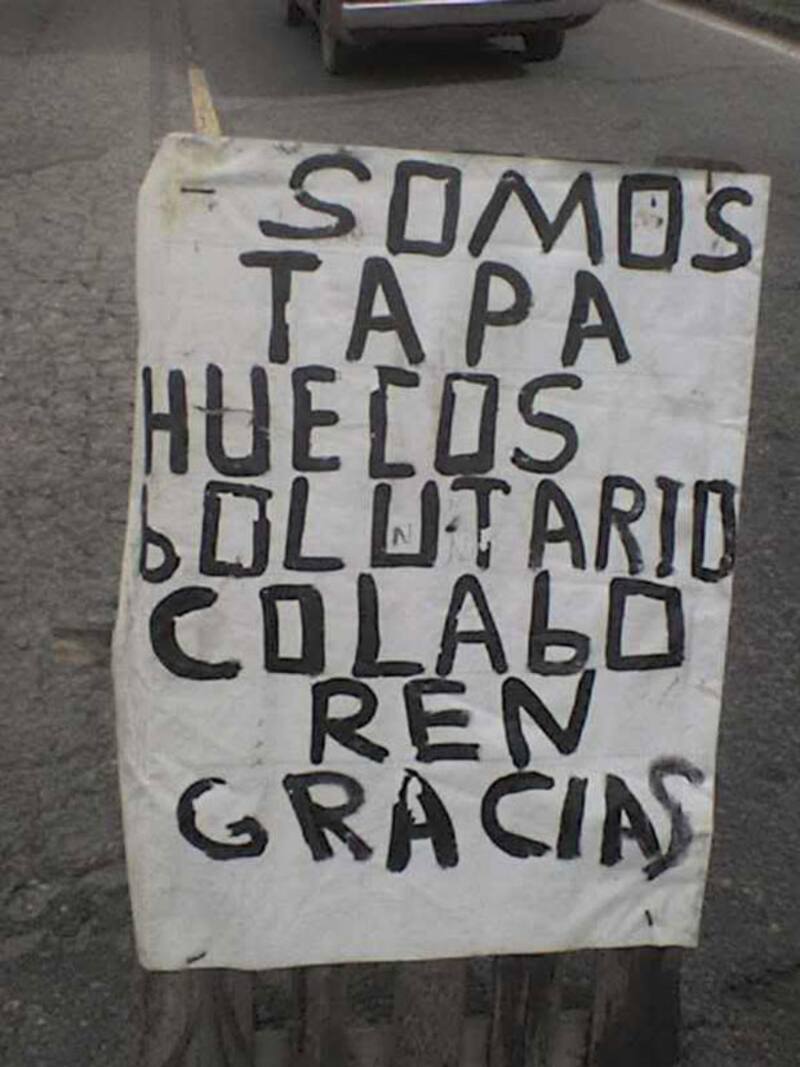 SOMOS
TAPA
HUECOS
bOLUTARIO
COLAbO
REN
GRACIAS